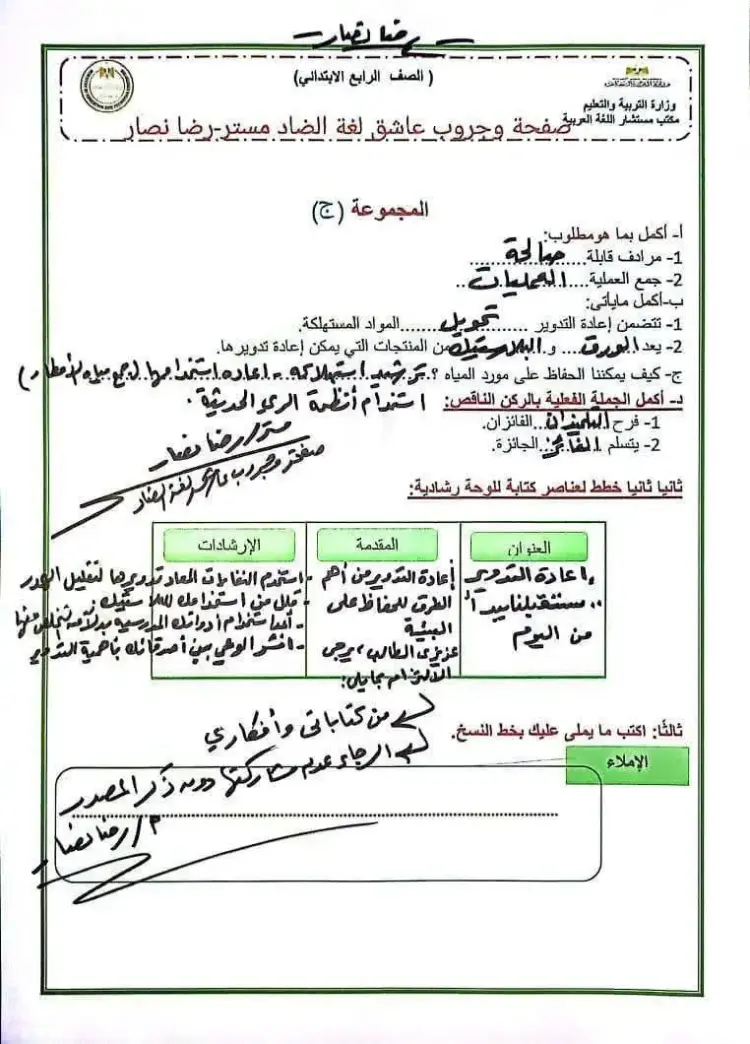 رضا نصار
(الصف الرابع الابتدائي)
وزارة التربية والتعليم
مكتب مستشار اللغة العربية
صفحة وجروب عاشق لغة الضاد مستر-رضا نصار
المجموعة (ج)
أ- أكمل بما هومطلوب:
1- مرادف قابلة....صالحة........
2- جمع العملية....العمليات..
ب-أكمل مايأتى:
1- تتضمن إعادة التدوير ....تحويل....المواد المستهلكة.
2- يعد الورق.... و البلاستيك من المنتجات التي يمكن إعادة تدويرها.
ج- كيف يمكننا الحفاظ على مورد المياه ؟ ترشيد استهلاكه - اعاده استخدامها لجمع مياه الأمطار)
استخدام أنظمة الري الحديثة.
د- أكمل الجملة الفعلية بالركن الناقص:
1- فرح التلميذان...الفائزان.
2- يتسلم .الفائز...الجائزة.
مستر/رضا نصار
صفحة وجروب عاشق لغة الضاد
ثانيا ثانيا خطط لعناصر كتابة للوحة رشادية:
العنوان
إعادة التدوير
.. مستقبلنا يبدأ
من اليوم
المقدمة
إعادة التدوير من أهم
الطرق للحفاظ على
البيئة
عزيزى الطالب، يرجى
الالتزام بمايلى:
الإرشادات
- استخدم النفايات المعاد تدويرها لتقليل الهدر
- قلل من استخدامك للبلاستيك.
- أعد استخدام أدواتك المدرسية بدلا من التخلص منها
- انشر الوعي بين أصدقائك بأهمية التدوير
من كتاباتى وأفكاري
الرجاء عدم مشاركتها دون ذكر المصدر
م/رضا نصار
ثالثًا: اكتب ما يملى عليك بخط النسخ.
الإملاء